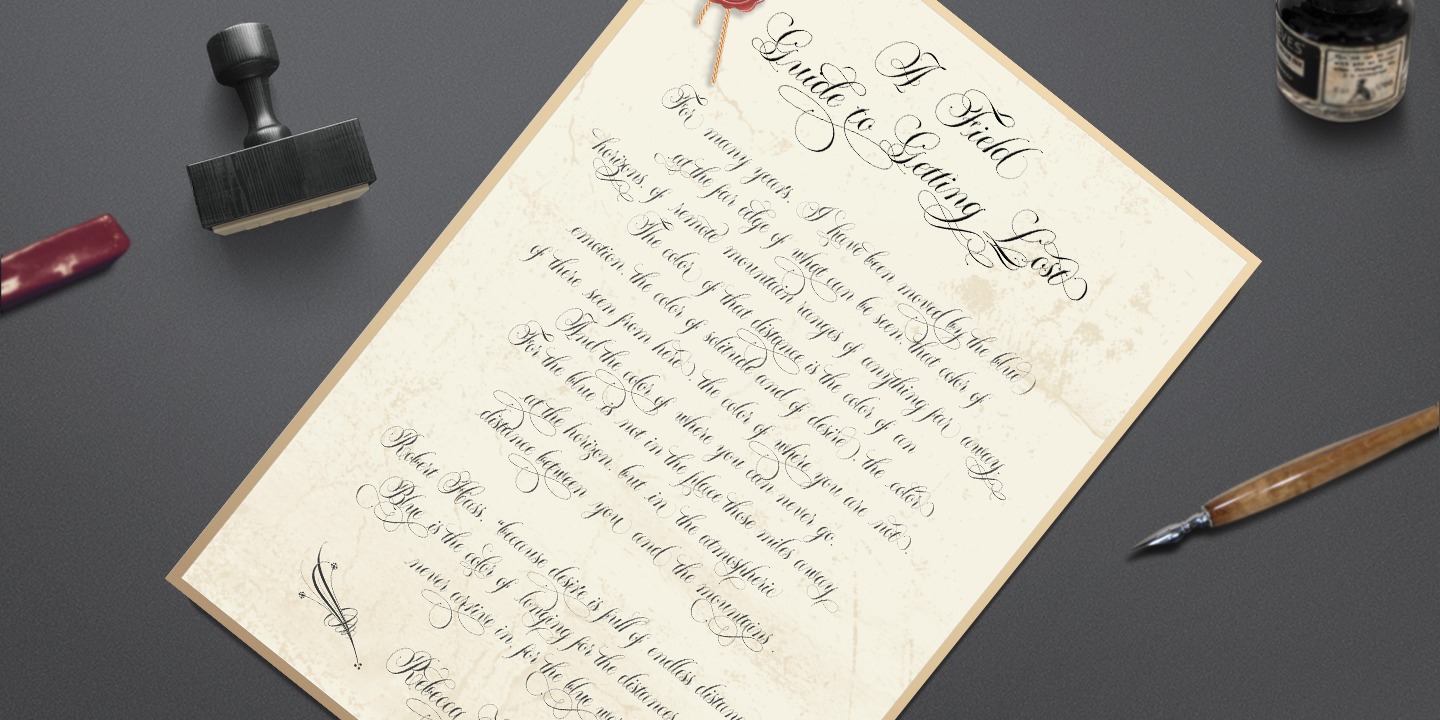 A Field
Guide to Getting Lost
For many years, I have been moved by the blue
at the far edge of what can be seen, that color of
horizons, of remote mountain ranges of anything far away.
The color of that distance is the color of an
emotion, the color of solitude and of desire, the color
of there seen from here, the color of where you are not.
And the color of where you can never go.
For the blue is not in the place those miles away
at the horizon, but in the atmospheric
distance between you and the mountains.
Robert Hass, "because desire is full of endless distan
Blue is the color of longing for the distances
never arrive in, for the blue wor
Rebecca